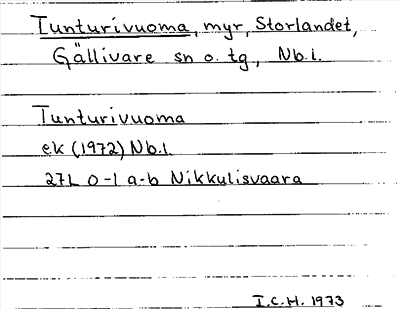 Tunturivuoma, myr, Storlandet,
Gällivare sn o. tg., Nb.l.
Tunturivuoma
ek (1972) Nb.l.
27L 0-1 a-b Nikkulisvaara
I.C.H. 1973